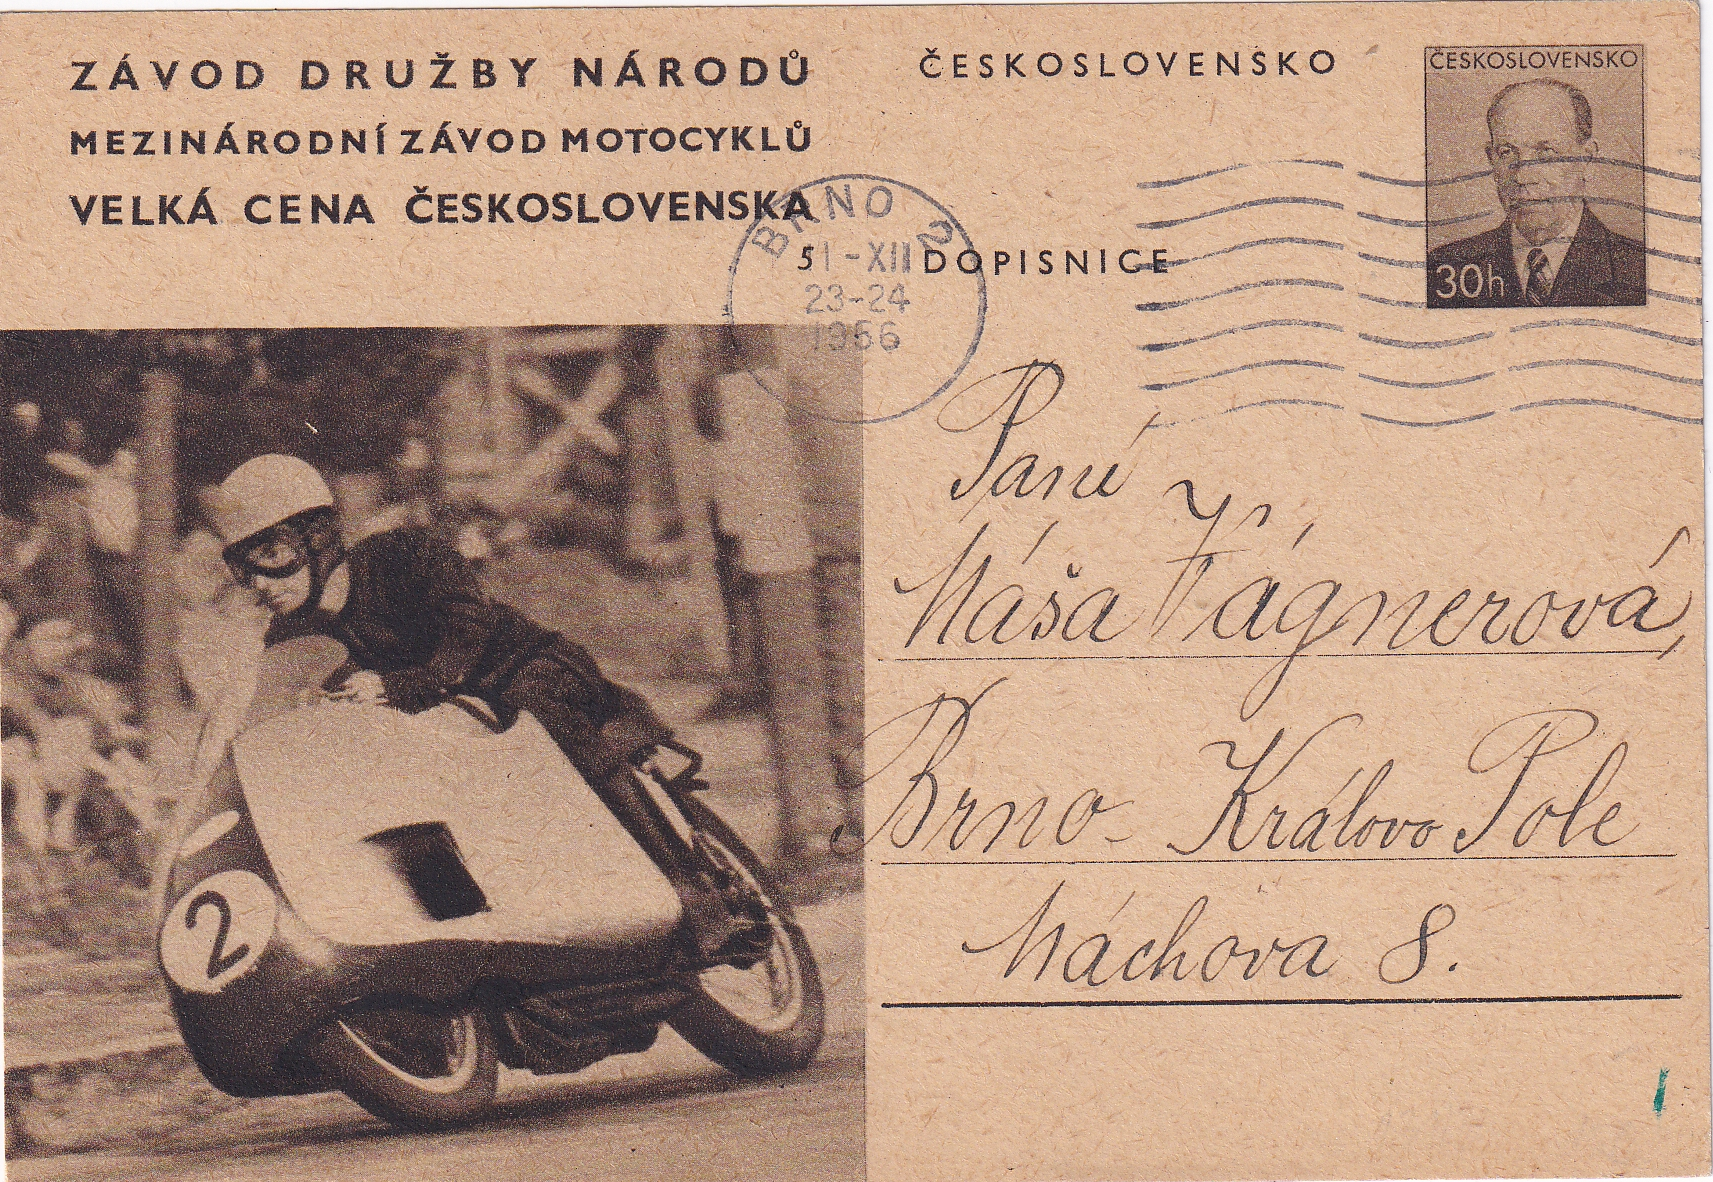 ZÁVOD DRUŽBY NÁRODŮ
MEZINÁRODNÍ ZÁVOD MOTOCYKLŮ
VELKÁ CENA ČESKOSLOVENSKA
ČESKOSLOVENSKO
ČESKOSLOVENSKO
30h
BRNO 2
51-XII
23-24
1956
DOPISNICE
2
Paní
Máša Vágnerová,
Brno-Královo Pole
Máchova 8.